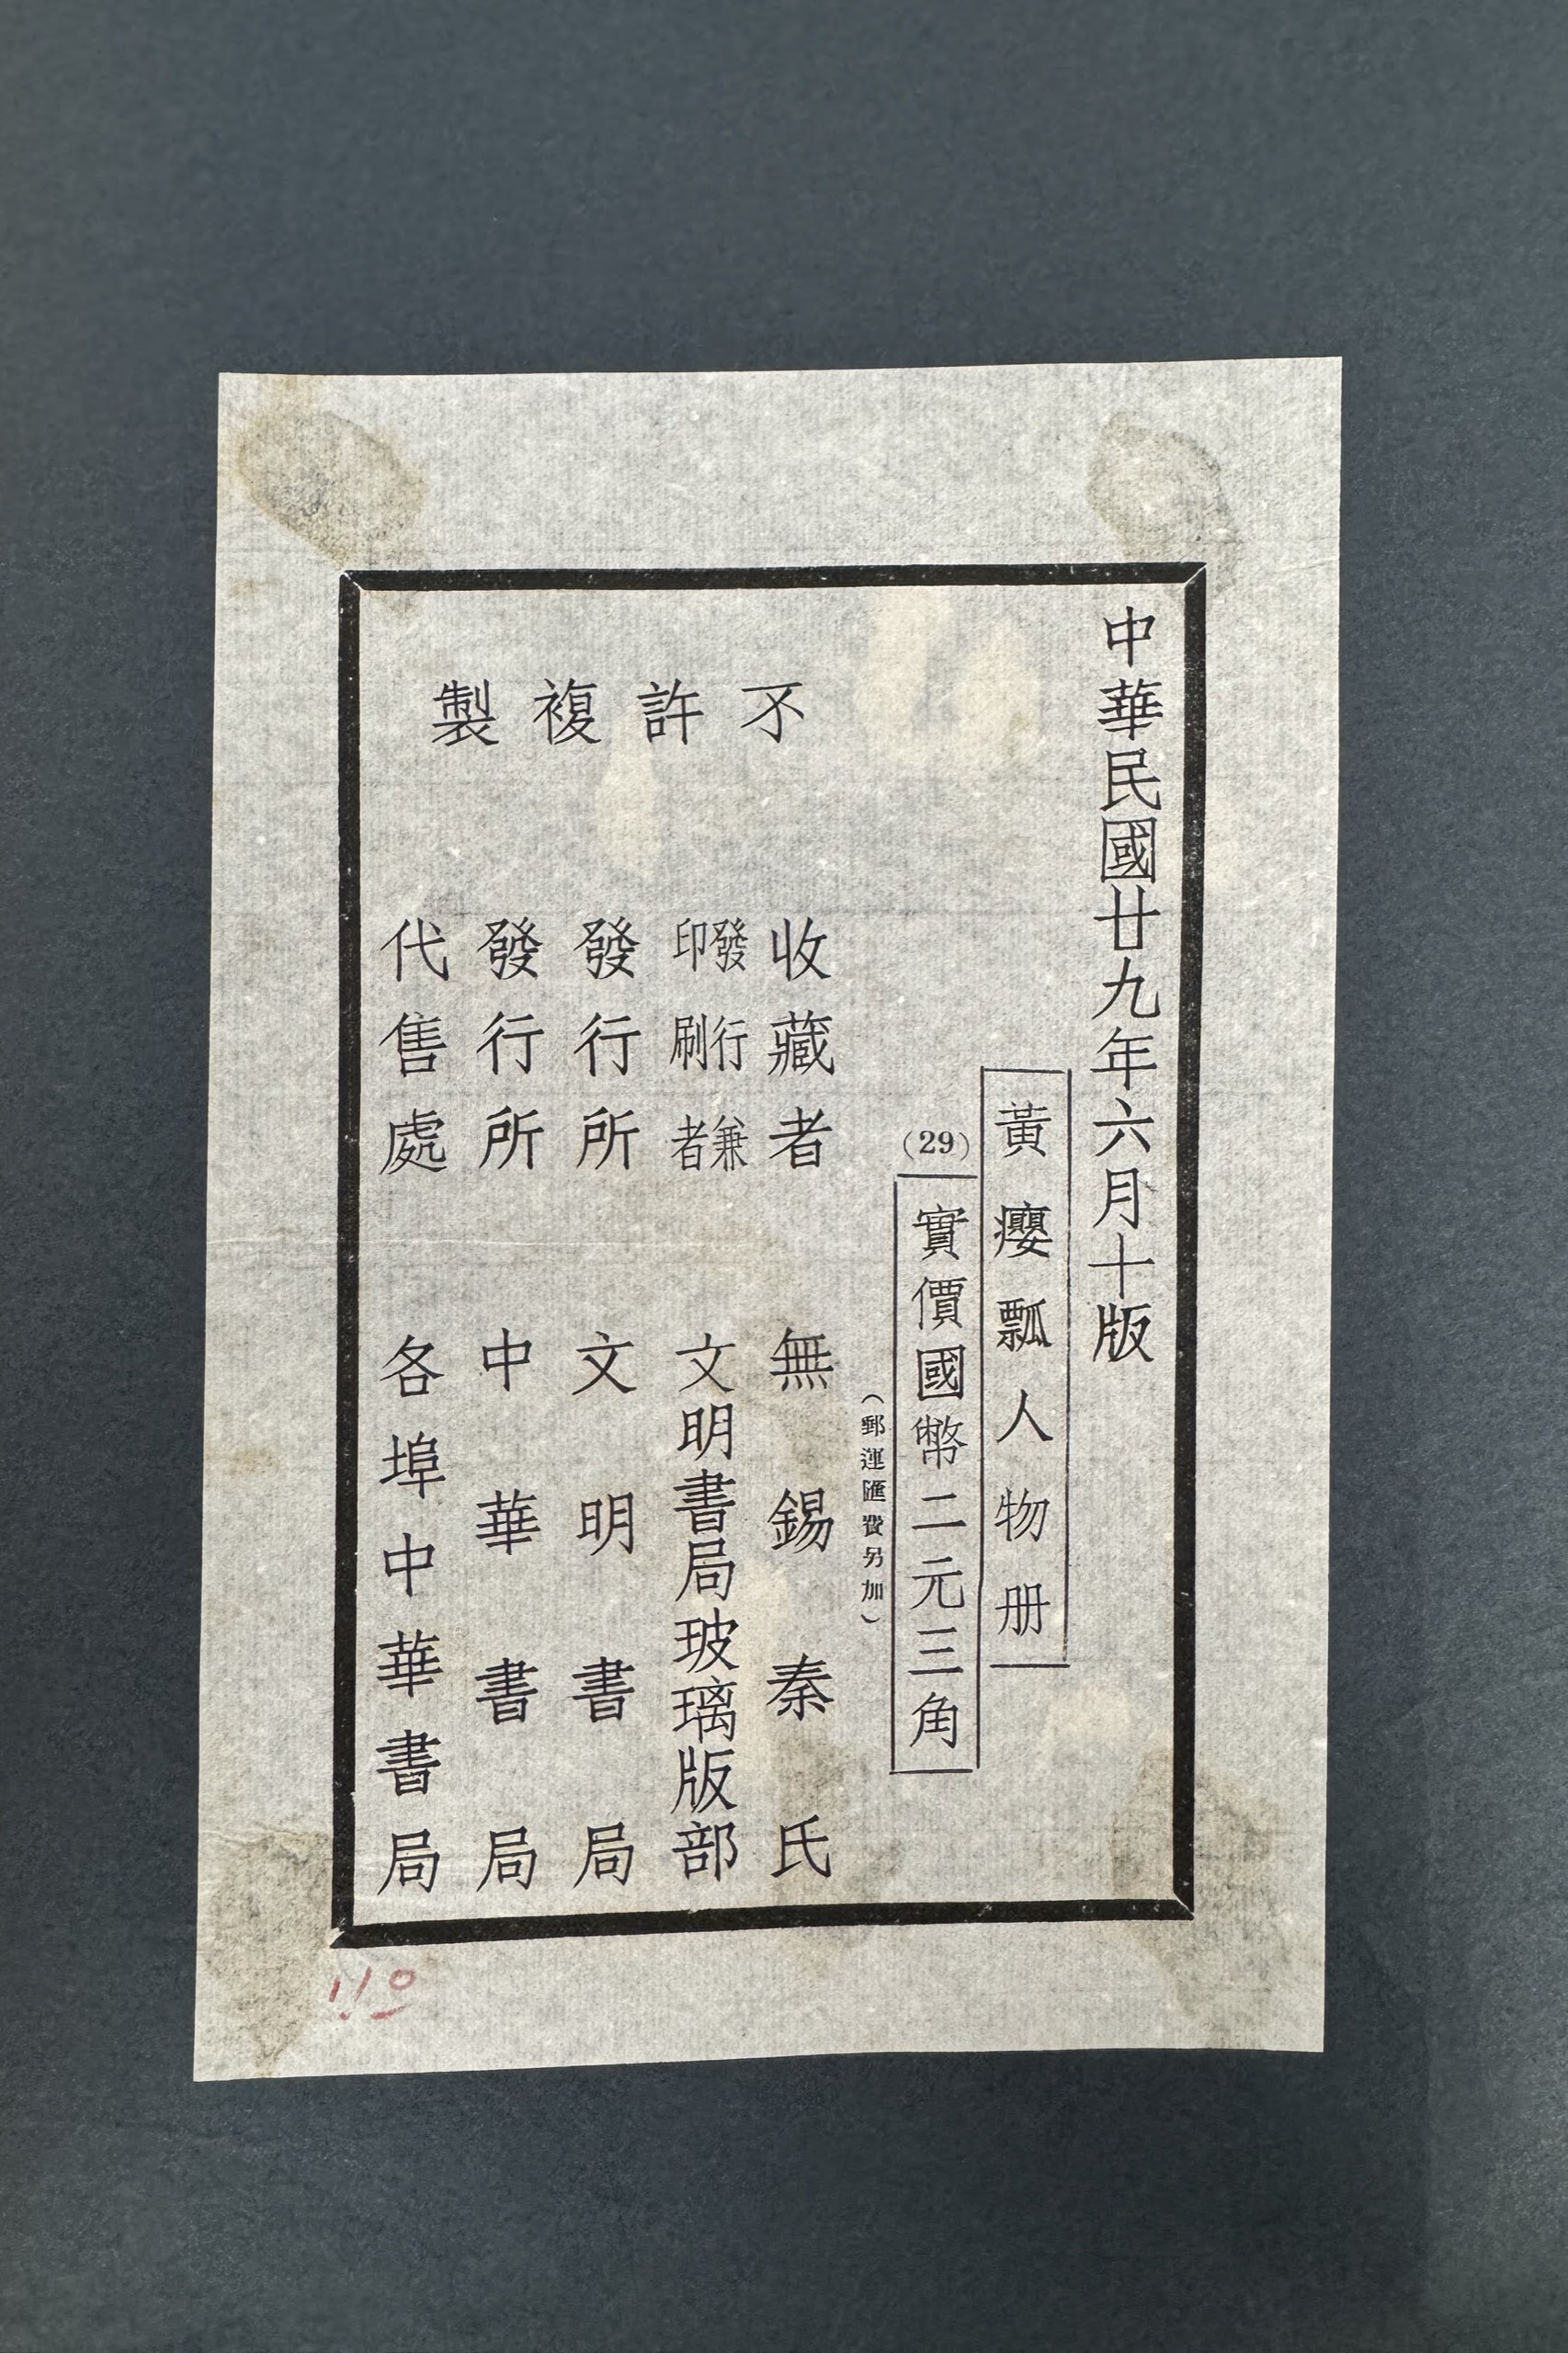 中華民國廿九年六月十版
黃癭瓢人物册
(29)
實價國幣二元三角
(郵運匯費另加)
不許複製
收藏者 無錫秦氏
發行兼印刷者 文明書局玻璃版部
發行所 文明書局
發行所 中華書局
代售處 各埠中華書局